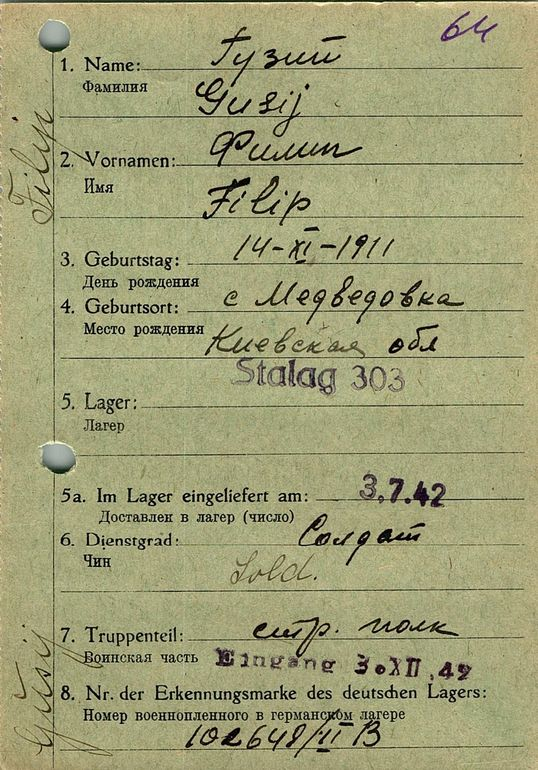 64
1. Name: Гузий
Фамилия
Gusij
2. Vornamen: Филип
Имя
Filip
3. Geburtstag: 14-XI-1911
День рождения
4. Geburtsort: с Медведовка
Место рождения
Киевская обл
Stalag 303
5. Lager:
Лагерь
5a. Im Lager eingeliefert am: 3.7.42
Доставлен в лагер (число)
6. Dienstgrad: Солдат
Чин
Sold.
7. Truppenteil: стр. полк
Воинская часть
Eingang 3.XII.42
8. Nr. der Erkennungsmarke des deutschen Lagers:
Номер военнопленного в германском лагере
102648/II B
Filip
Gusij